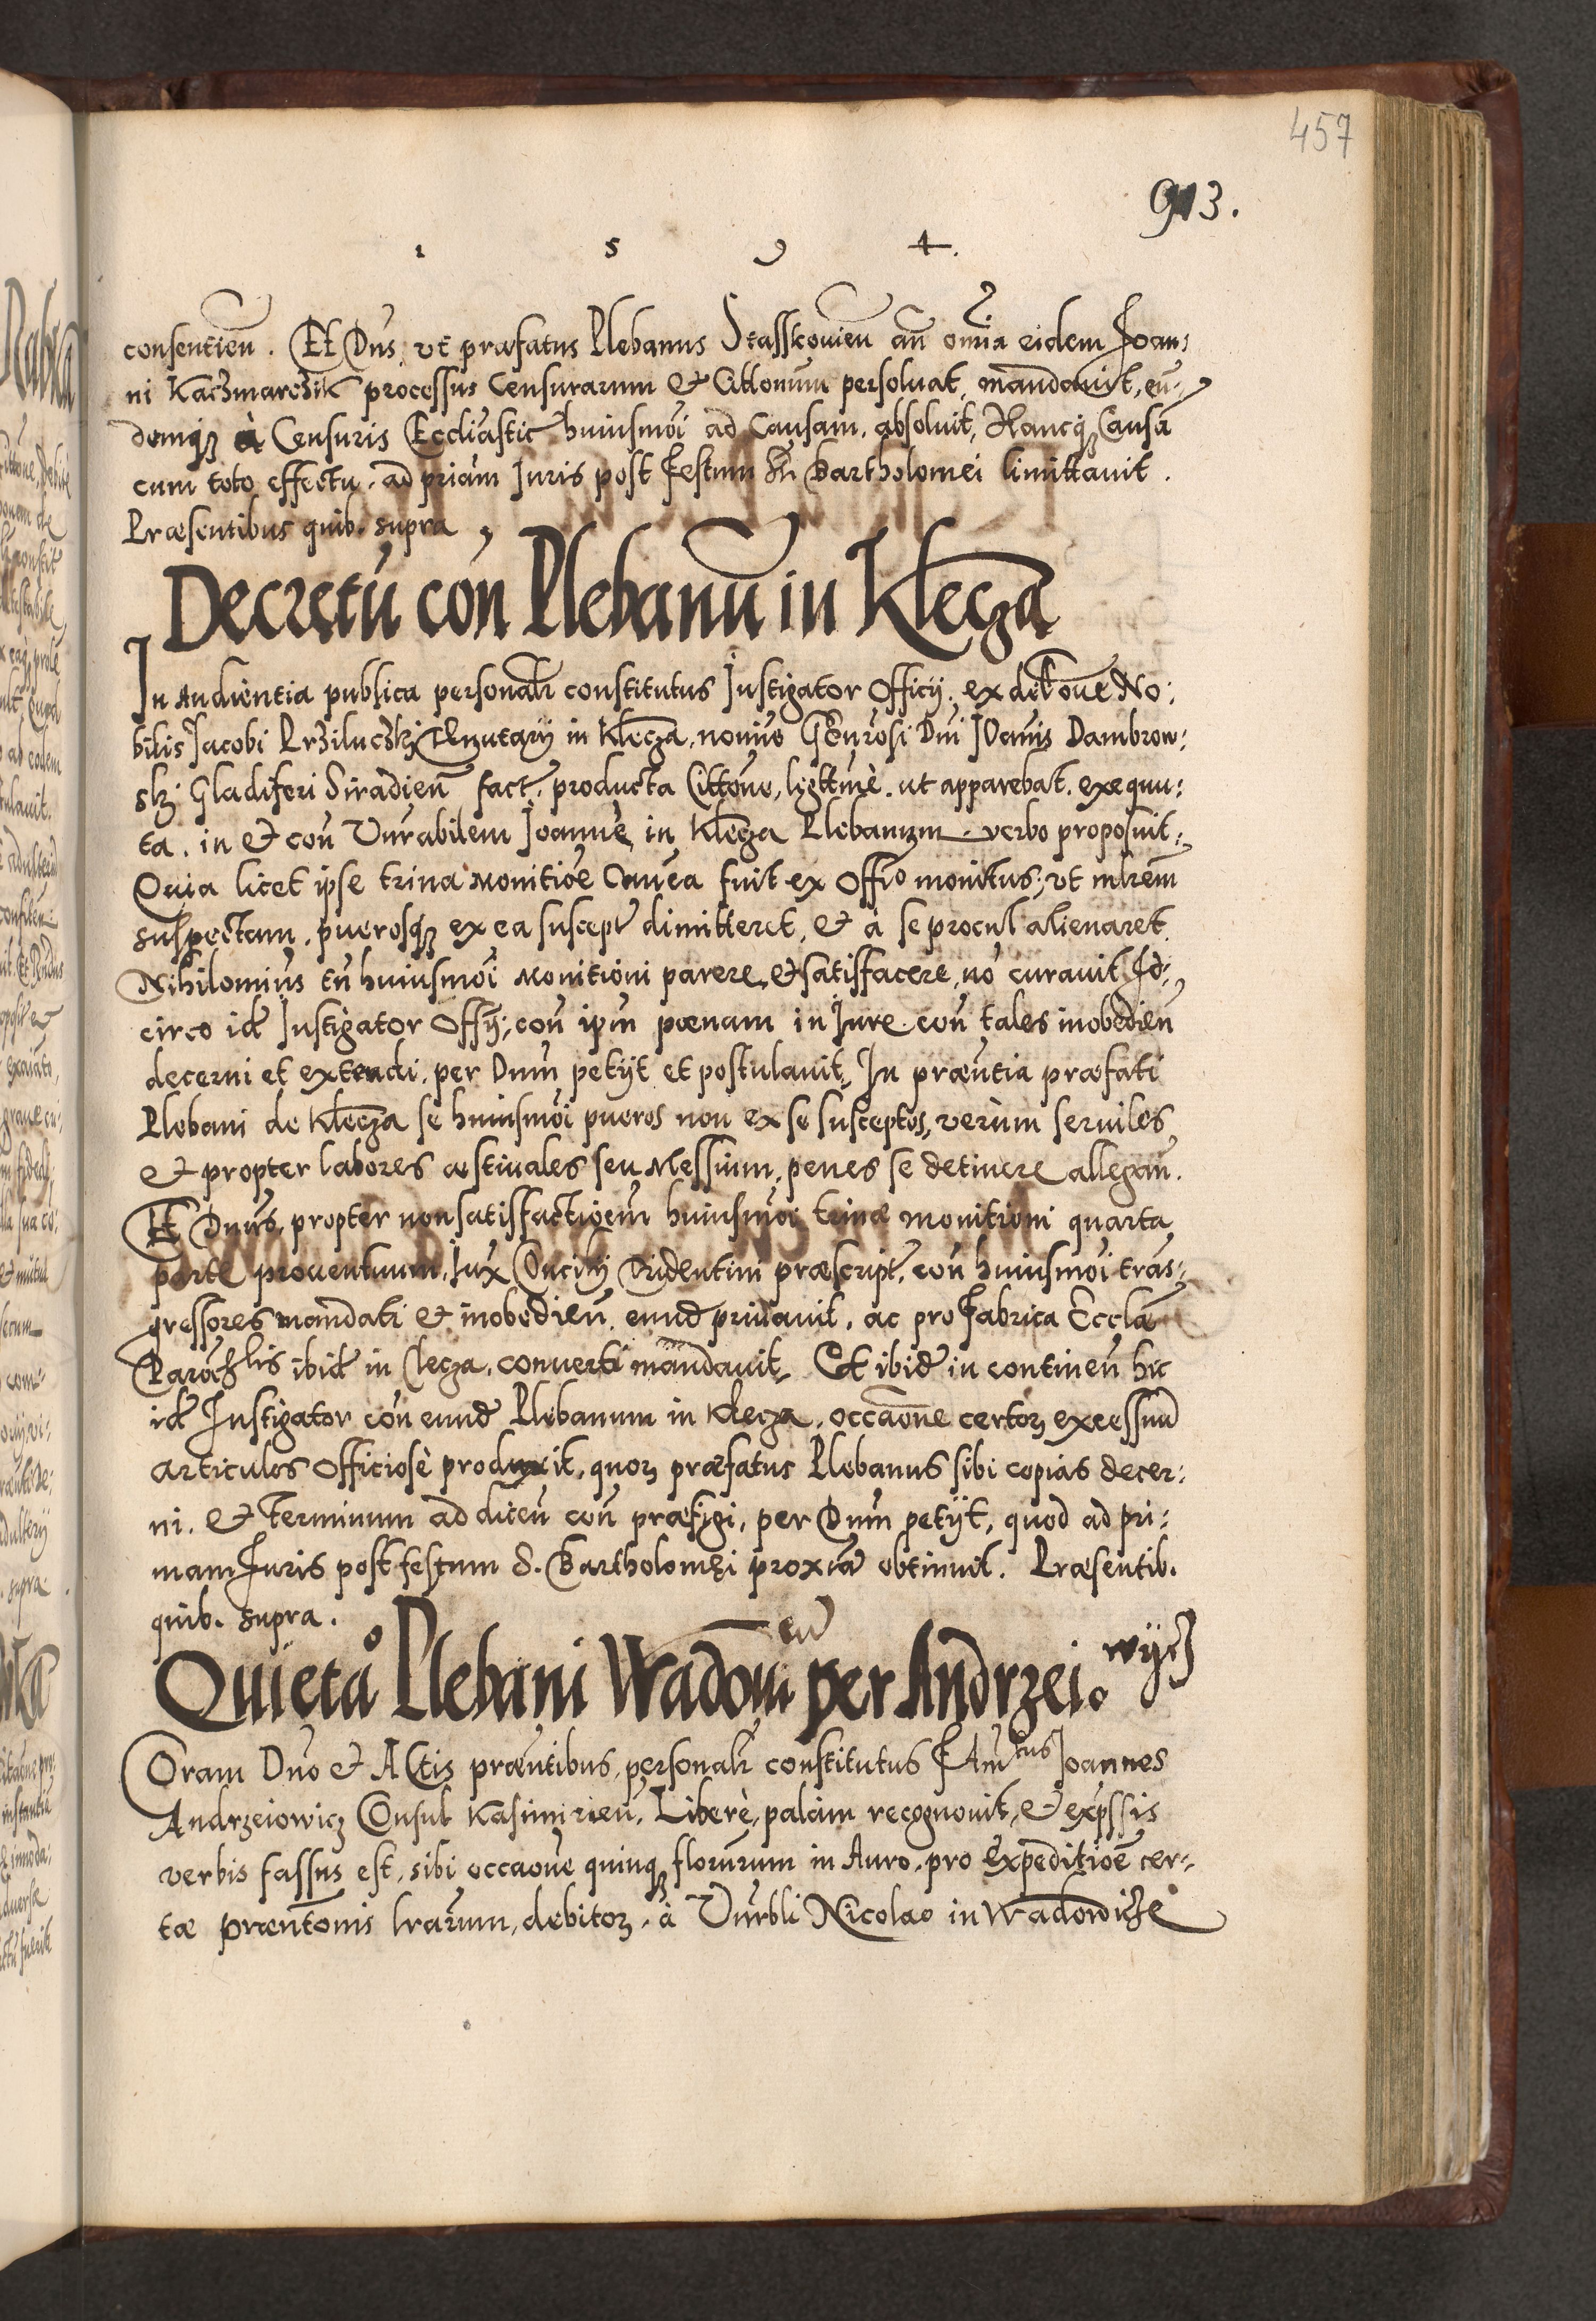 457
913.
1 5 9 4.
consentien̄. Et Dn̄s, vt præfatus Plebanus Stasskouien̄ an̄ omīa eidem Joan:
ni Kaczmarczik processus Censurarum & Cittonum persoluat, mandauit, eun:
demq̃ à Censuris Eccl̄iastic̄ huiusmōi ad Causam, absoluit, Hancq̃ Causā
cum toto effectu, ad priam̄ Juris post Festum Sti Bartholomei limittauit.
Præsentibus quib. supra
Decretū con̄ Plebanū in Klecza
In Audientia publica personalr̄ constitutus Instigator Officij, ex del̄one No:
bilis Jacobi Prziluczkj Tenutarij in Klecza, nomīe Gen̄rosi Dn̄i Joan̄is Dambrow:
skj Gladiferi Siradien̄ fact̄, producta Citt̄one, lygttīmè, ut apparebat, exequu:
ta, in & con̄ Vn̄rabilem Joannē in Klecza Plebanum verbo proposuit:
Quia licet ipse trina Monitiōe Can̄ca fuit ex Offīo monitus, vt mlr̄em
suspectam, puerosq̃ ex ea suscept̄ dimitteret, & à se procul alienaret.
Nihilomin̄s tn̄ huiusmōi Monitioni parere, & satisfacere, nō curauit, Id:
circo id̄ Instigator Offīj, con̄ ipm̄ pœnam in Jure con̄ tales inobedien̄
decerni et extendi, per Dnm̄ petijt et postulauit, In præn̄tia præfati
Plebani de Klecza se huiusmōi pueros non ex se susceptos, verùm seruiles,
& propter labores æstiuales seu Messium, penes se detinere allegan̄.
Et Dnūs, propter non satisfactiōem huiusmōi trinæ monitioni quarta
parte prouentuum, Jux̄ Concilij Tridentini præscript̄, con̄ huiusmōi trās:
gressores mandati & inobedien̄, eund̄ priuauit, ac pro Fabrica Eccl̄æ
Paroch̄lis ibid̄ in Clecza, conuerti mandauit, Et ibid̄ in continen̄ hic
id̄ Instigator con̄ eund̄ Plebanum in Klecza, occāone certoꝝ excessuū
articulos Officiosè produxit, quoꝝ præfatus Plebanus sibi copias decer:
ni, & Terminum ad dicen̄ con̄ præfigi, per Dnm̄ petijt, quod ad pri:
mam Juris post festum S. Bartholomęi proximā obtinuit. Præsentib.
quib. supra.
Quietao Plebani Wadouien̄ per Andrzeiowijcz
Coram Dn̄o & Actis præn̄tibus, personalr̄ constitutus Fam̄tus Joannes
Andrzeiowicz Consul Kasimirien̄, Liberè, palàm recognouit, & exp̄ssis
verbis fassus est, sibi occāone quinq̃ florun̄rum in Auro, pro expeditiōe cer:
tæ præn̄tonis lr̄arum, debitoꝝ, à Vn̄rbli Nicolao in Wadowicze